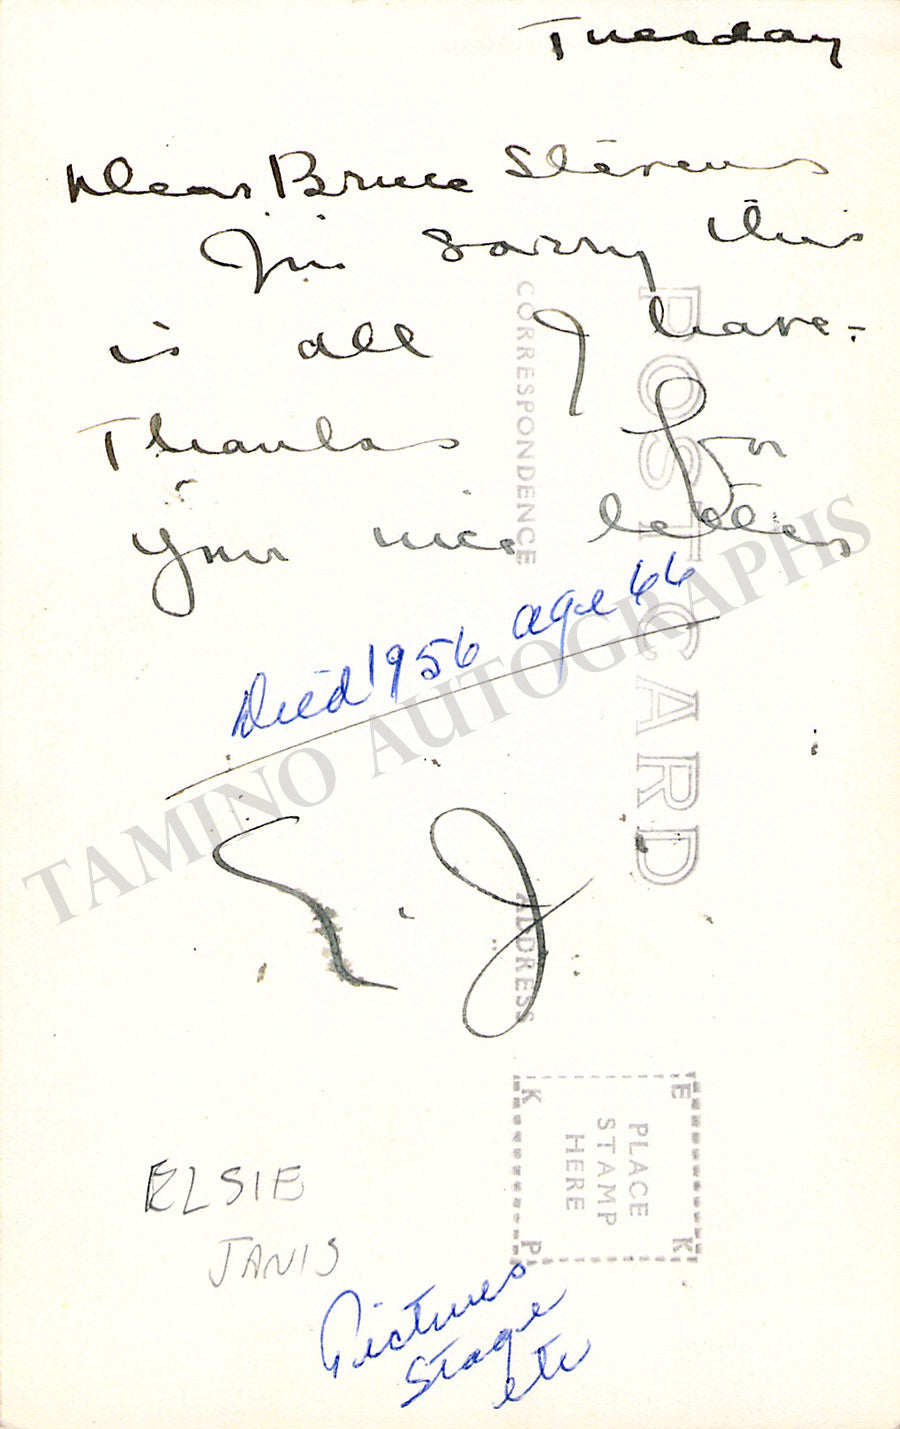 Tuesday
Dear Bruce Stevens
I'm sorry this
is all I have -
Thanks for
your nice letter
Died 1956 age 66
E. J
ELSIE
JANIS
Pictures
Stage
etc
POST CARD
CORRESPONDENCE
ADDRESS
PLACE
STAMP
HERE
E K
K P
TAMINO AUTOGRAPHS